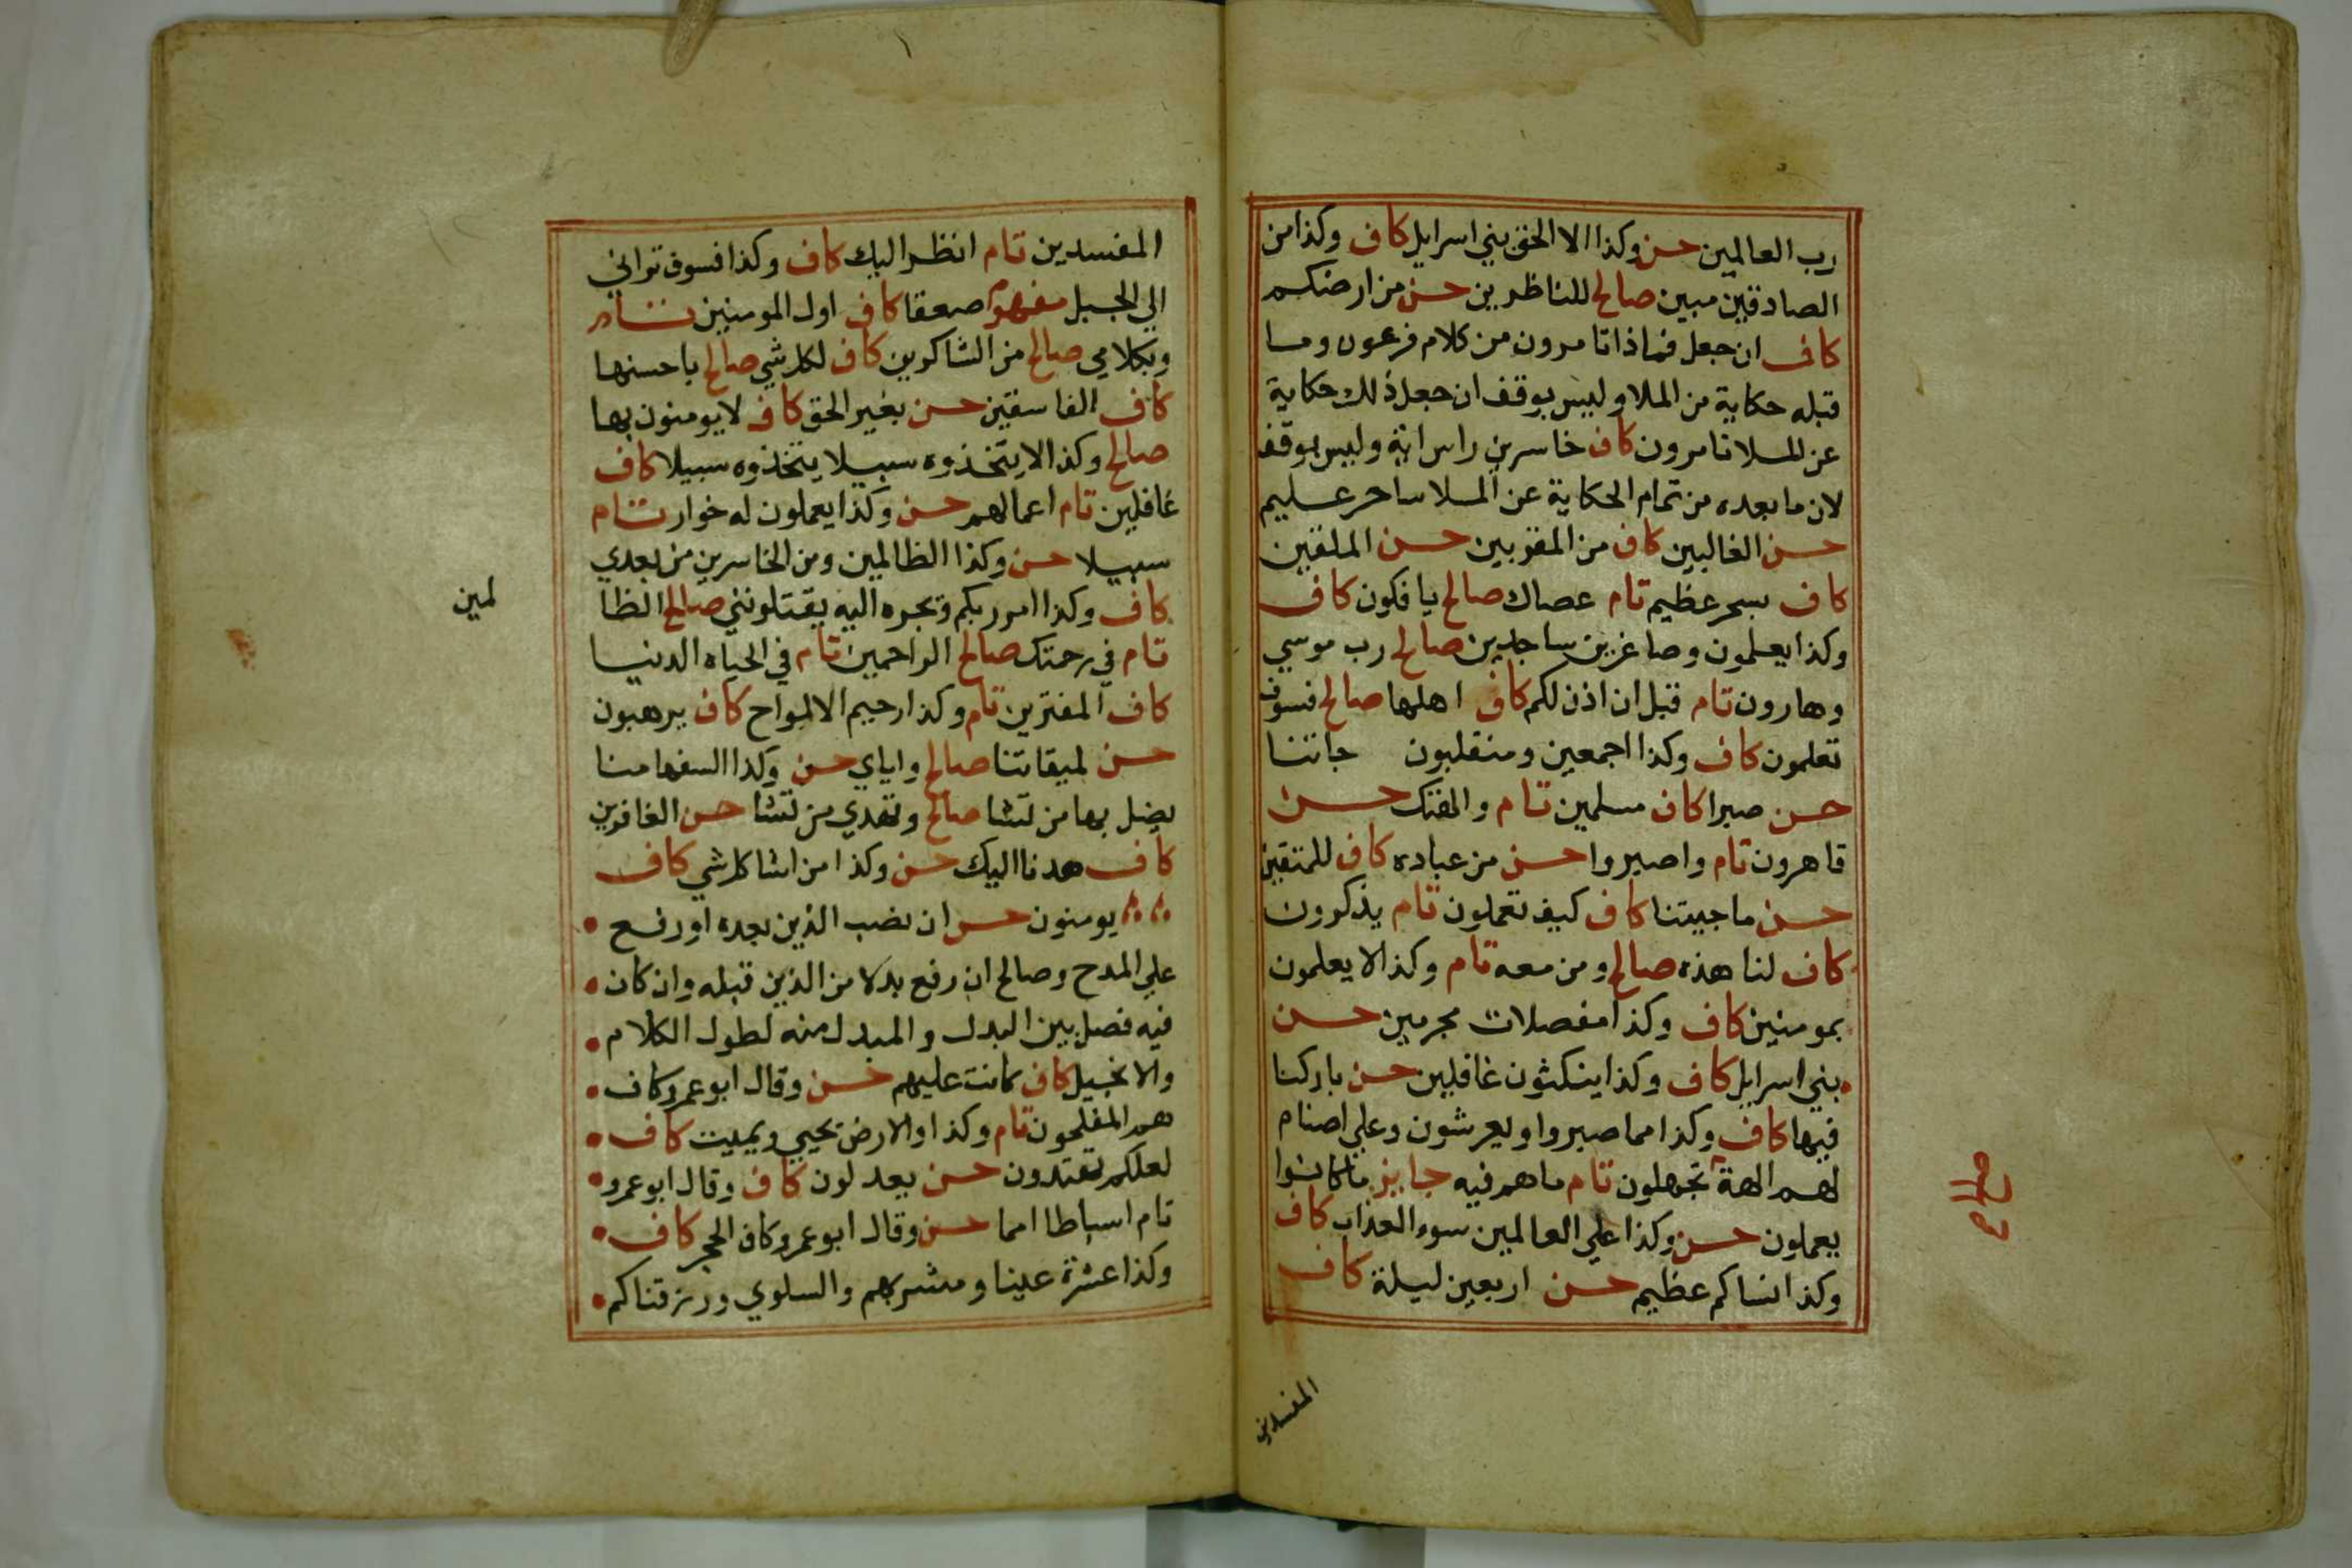 رب العالمين حسن وكذا الا الحق بني اسرايل كاف وكذا من
الصادقين مبين صالح للناظرين حسن من ارضكم
كاف ان جعل فماذا تامرون من كلام فرعون وما
قبله حكاية من الملا وليس بوقف ان جعل ذلك حكاية
عن الملا تامرون كاف خاسرين راس اية وليس بوقف
لان ما بعده من تمام الحكاية عن الملا ساحر عليم
حسن الغالبين كاف من المقربين حسن الملقين
كاف بسحر عظيم تام عصاك صالح يافكون كاف
وكذا يعلمون وصاغرين ساجدين صالح رب موسي
وهارون تام قبل ان اذن لكم كاف اهلها صالح فسوف
تعلمون كاف وكذا اجمعين ومنقلبون جاتنا
حسن صبرا كاف مسلمين تام والهتك حسن
قاهرون تام واصبروا حسن من عباده كاف للمتقين
حسن ما جيتنا كاف كيف تعملون تام يذكرون
كاف لنا هذه صالح ومن معه تام وكذا لا يعلمون
بمومنين كاف وكذا مفصلات مجرمين حسن
بني اسرايل كاف وكذا ينكثون غافلين حسن باركنا
فيها كاف وكذا مما صبروا ويعرشون وعلي اصنام
لهم الهة تجهلون تام ما هم فيه جايز ما كانوا
يعملون حسن وكذا علي العالمين سوء العذاب كاف
وكذا نساكم عظيم حسن اربعين ليلة كاف
صالح
المفسدين
المفسدين تام انظر اليك كاف وكذا فسوف تراني
الي الجبل مفهوم صعقا كاف اول المومنين تام
وبكلامي صالح من الشاكرين كاف لكل شي صالح باحسنها
كاف الفاسقين حسن بغير الحق كاف لا يومنون بها
صالح وكذا لا يتخذوه سبيلا يتخذوه سبيلا كاف
غافلين تام اعمالهم حسن وكذا يعملون له خوار تام
سبيلا حسن وكذا الظالمين ومن الخاسرين من بعدي
كاف وكذا امر ربكم وتجره اليه يقتلونني صالح الظا
لمين
تام في رحمتك صالح الراحمين تام في الحياه الدنيا
كاف المفترين تام وكذا رحيم الالواح كاف يرهبون
حسن لميقاتنا صالح واياي حسن وكذا السفها منا
يضل بها من تشا صالح وتهدي من تشا حسن الغافرين
كاف هدنا اليك حسن وكذا من اشا كل شي كاف
يومنون حسن ان نصب الذين بعده او رفع
علي المدح وصالح ان رفع بدلا من الذين قبله وان كان
فيه فصل بين البدل والمبدل منه لطول الكلام
والانجيل كاف كانت عليهم حسن وقال ابو عمرو كاف
هم المفلحون تام وكذا والارض يحيي ويميت كاف
لعلكم تهتدون حسن يعدلون كاف وقال ابو عمرو
تام اسباطا امما حسن وقال ابو عمرو كاف الحجر كاف
وكذا عشرة عينا ومشربهم والسلوي ورزقناكم